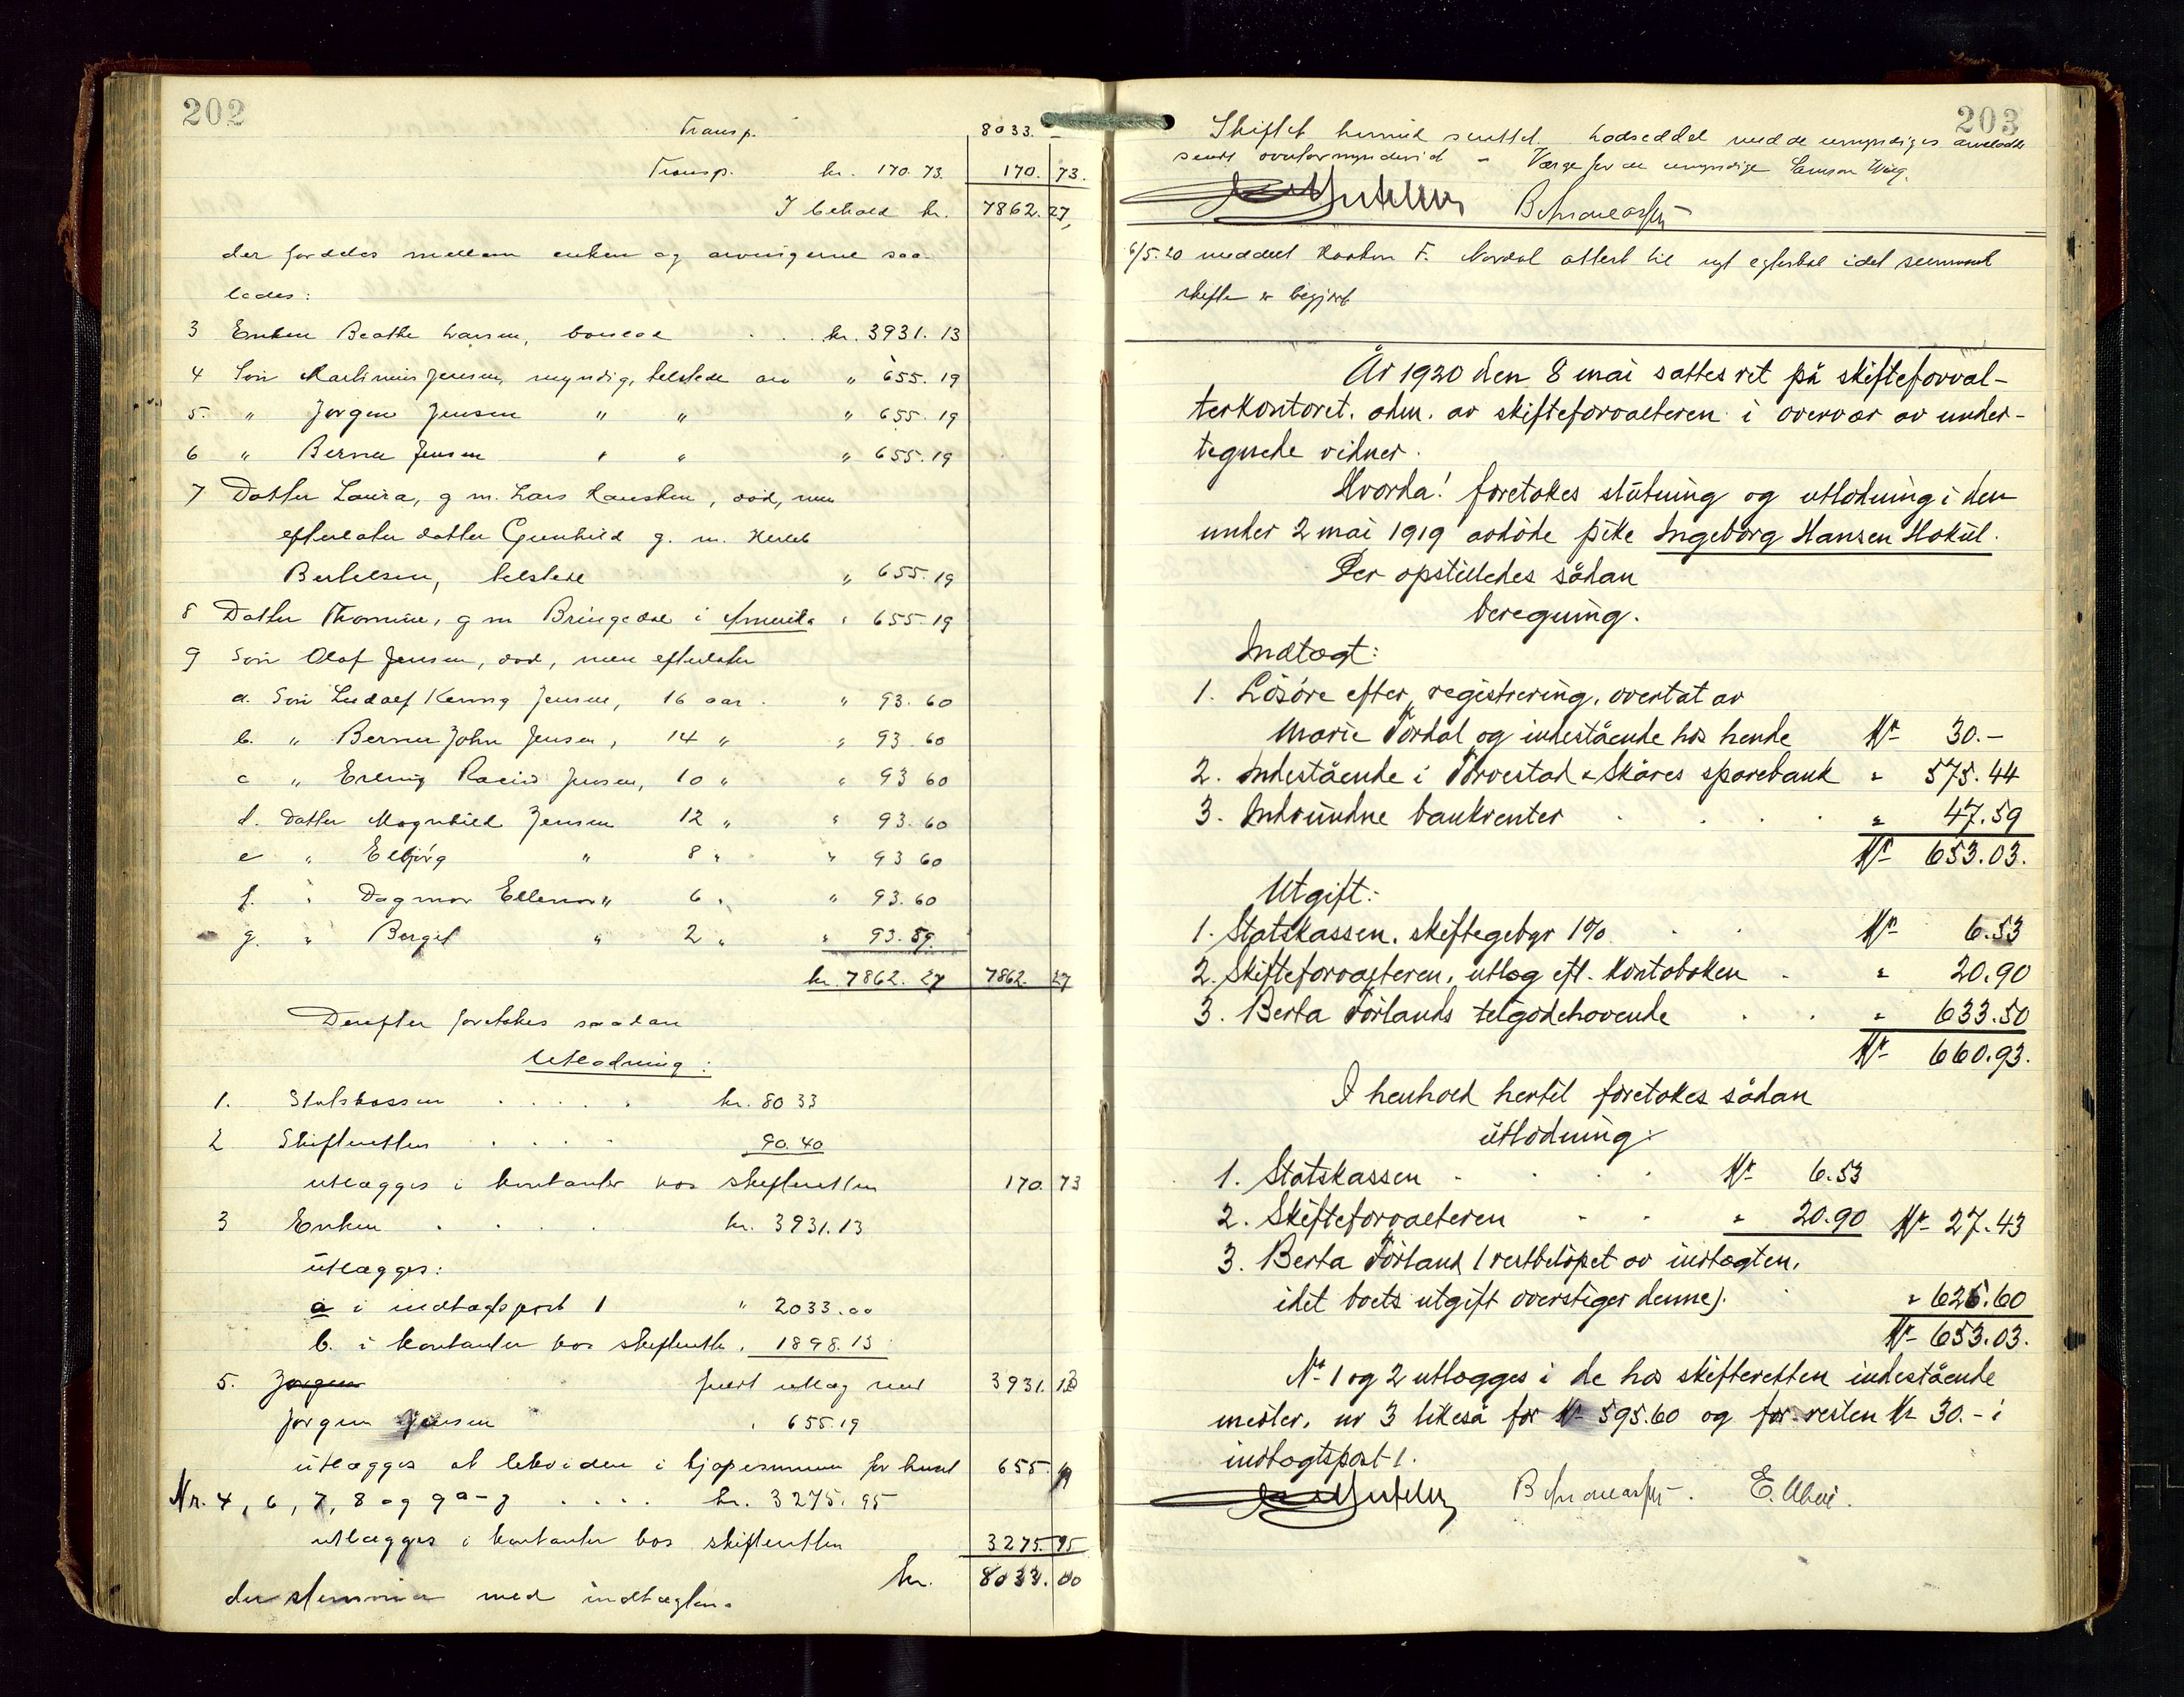 202
Transp. 8033. —
Transp. kr. 170.73. 170. 73.
I behold kr. 7862. 27,
der fordeles mellem enken og arvingerne saa-
ledes:
3 Enken Beathe Larsen, boslod . . . kr. 3931. 13
4 Søn Martinius Jensen, myndig, tilstede arv " 655. 19
5. " Jørgen Jensen " " " 655. 19
6 " Berner Jensen " " " 655. 19
7 Datter Laura, g m. Lars , død, men
efterlater datter Gunhild g. m. Herleb
Bertelsen, tilstede " 655. 19
8 Datter Thomine, g m Bringedal i Amerika " 655-19
9 Søn Olaf Jensen, død, men efterlater
a. Søn Ludolf Jensen, 16 aar . " 93. 60
b. " Berner John Jensen, 14 " " 93. 60
c " Erling Jensen, 10 " " 93 60
d. Datter Magnhild Jensen 12 " " 93. 60
e " Elbjørg " 8 " " 93 60
f. " Dagmar Ellenor " 6 " " 93. 60
g. " Bergit " 2 " " 93. 59.
kr. 7862. 27 7862. 27
Derefter foretokes saadan
Utlodning:
1. Statskassen . . . . . kr. 80 33
2 Skifteretten . . . . 90. 40
utlægges i kontanter hos skifteretten 170. 73
3 Enken . . . . kr. 3931.13
utlægges:
a i indtægtspost 1 " 2033.00
b. i kontanter hos skifterett. 1898. 13
5. Jørgen fuldt utlæg med 3931. 13
Jørgen Jensen " 655.19
utlægges at likvidere i kjøpesummen for huset 655. 19
Nr. 4, 6, 7, 8 og 9 a-g . . . . kr. 3275. 95
utlægges i kontanter hos skifteretten 3275. 95
kr. 8033. 00
der stemmer med indtægten.
203
Skiftet hermed sluttet. Lodseddel med de umyndiges arvelodder
sendt overformynderiet - Værge for de umyndige
6/5.20 meddelt Haakon F. Nordal attest til uskifte er begjært
År 1920 den 8 mai sattes ret på skifteforval-
terkontoret. adm. av skifteforvalteren i overvær av under-
tegnede vidner.
Hvorda! foretokes slutning og utlodning i den
under 2 mai 1919 avdøde pike Ingeborg Hansen Hokul.
Der opstilledes sådan
beregning.
Indtægt:
1. Løsøre efter registrering, overtat av
Marie Førdal og indestående hos hende Kr 30.-
2. Indestående i Torvestad & Skåres sparebank " 575.44
3. Indvundne bankrenter . . . . " 47.59
Kr 653.03.
Utgift:
1. Statskassen. skiftegebyr 1% . . Kr 6.53
2. Skifteforvalteren, utlæg eft. kontoboken . " 20.90
3. Berta Førlands tilgodehavende . . " 633.50
Kr 660.93.
I henhold hertil foretokes sådan
utlodning:
1. Statskassen . . . . Kr 6.53
2. Skifteforvalteren . . " 20.90 Kr 27.43
3. Berta Førland (restbeløpet av indtægten,
idet boets utgift overstiger denne). . " 625.60
Kr 653.03.
Nr 1 og 2 utlægges i de hos skifteretten indestående
midler, nr 3 likeså for Kr 595.60 og for resten Kr 30.- i
indtægtspost 1.